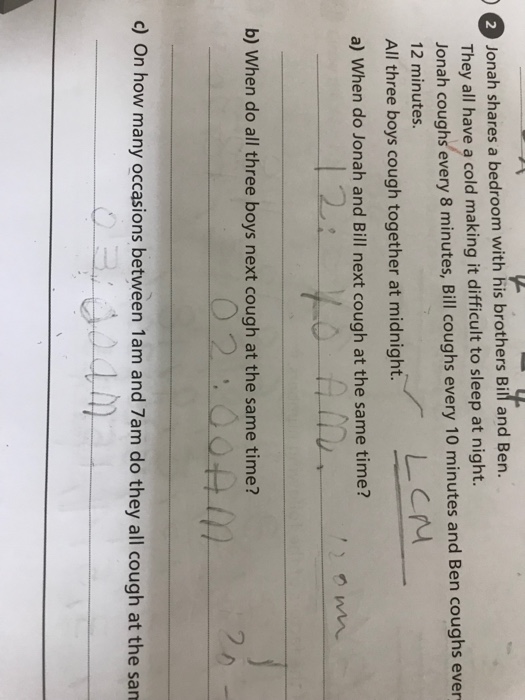 2 Jonah shares a bedroom with his brothers Bill and Ben.
They all have a cold making it difficult to sleep at night.
Jonah coughs every 8 minutes, Bill coughs every 10 minutes and Ben coughs ever
12 minutes.
All three boys cough together at midnight.
LCM
a) When do Jonah and Bill next cough at the same time?
12:40 AM
b) When do all three boys next cough at the same time?
02:00AM
c) On how many occasions between 1am and 7am do they all cough at the sam
03:00am